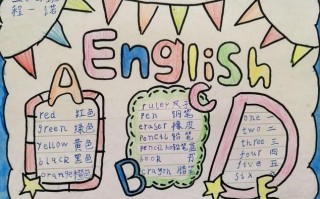 程一诺
English
A
red 红色
green 绿色
yellow 黄色
black 黑色
orange 橙色
B
C
ruler 尺子
pen 钢笔
eraser 橡皮
pencil 铅笔
pencil box 铅笔盒
book 书
crayon 蜡笔
D
one 一
two 二
three 三
four 四
five 五
six 六